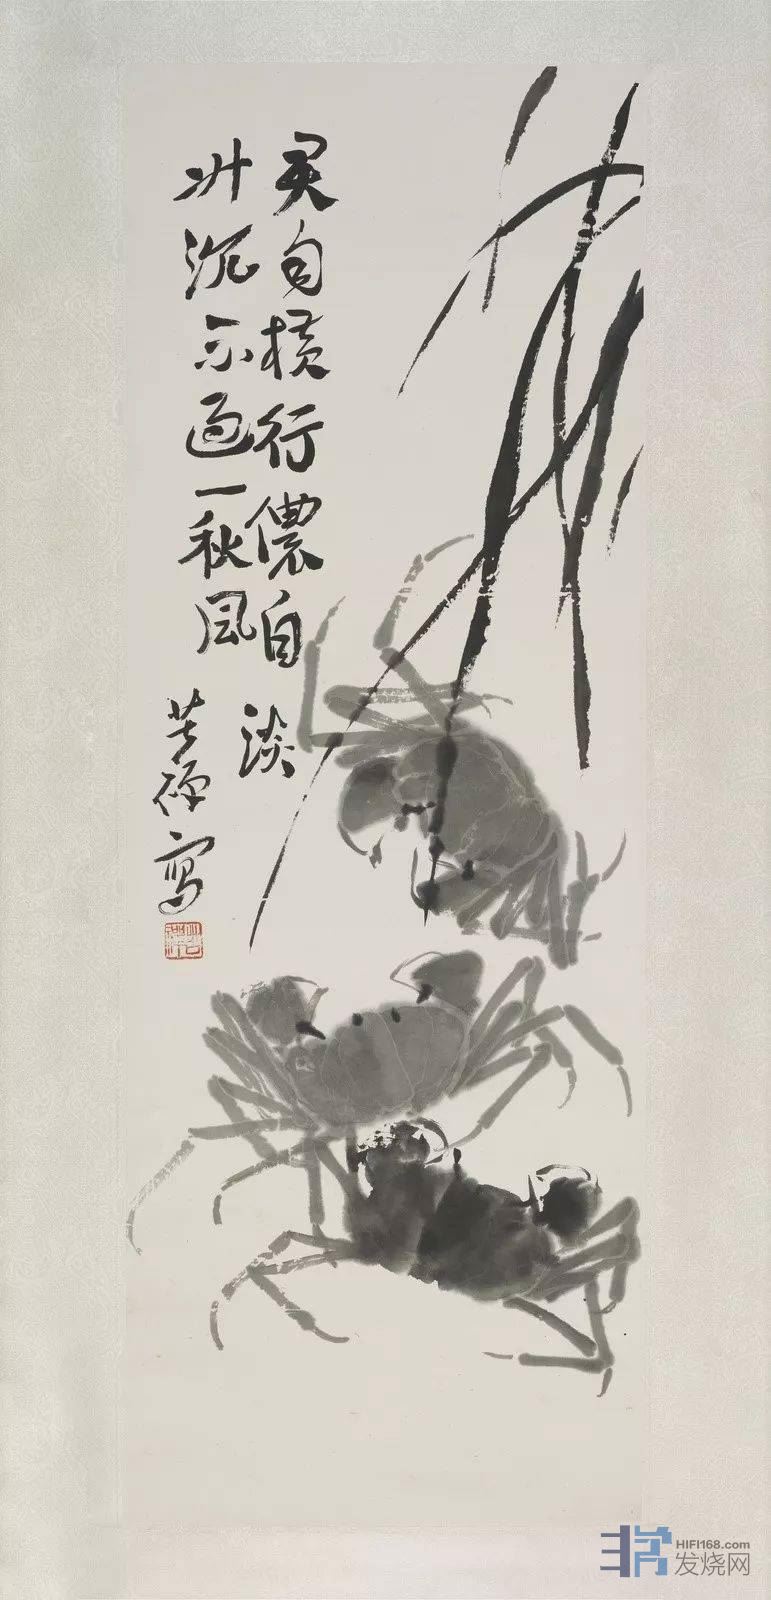 君自横行儂自淡
升沉不過一秋風
苦禪寫
HIFI168.com
发烧网